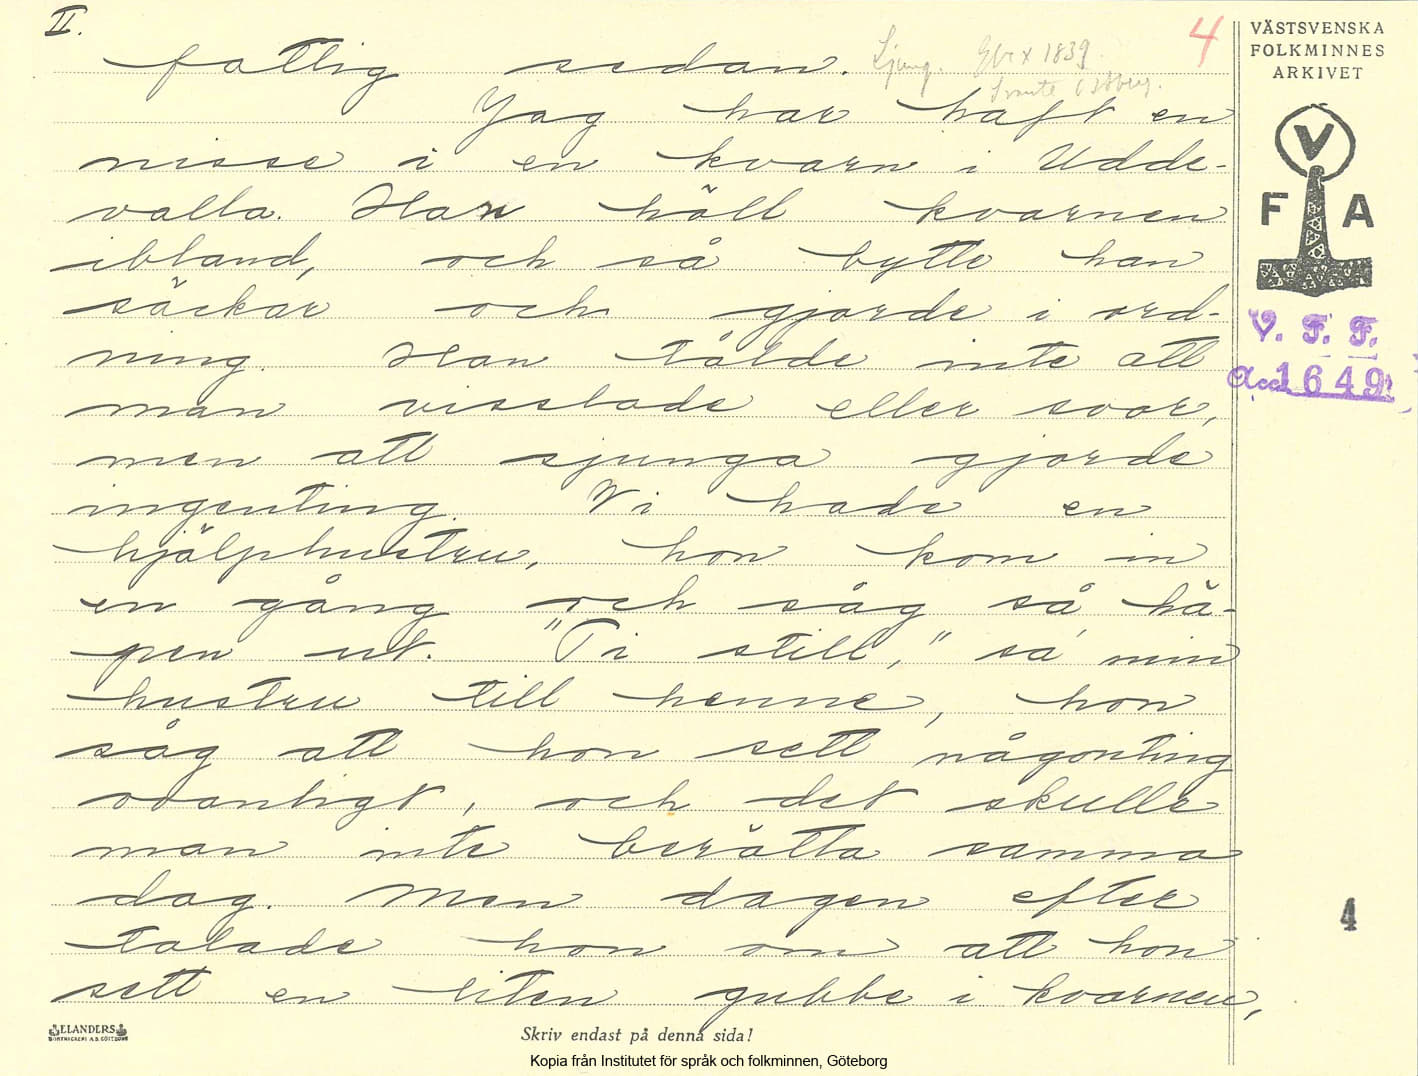 II.
4
fattig sedan.
Ljung. 1839.
Jag har haft en
nisse i en kvarn i Udde-
valla. Han höll kvarnen
ibland, och så bytte han
säckar och gjorde i ord-
ning. Han tålde inte att
man visslade eller svor,
men att sjunga gjorde
ingenting. Vi hade en
hjälphustru, hon kom in
en gång och såg så hä-
pen ut. "Ti still," sa min
hustru till henne, hon
såg att hon sett någonting
ovanligt, och det skulle
man inte berätta samma
dag. Men dagen efter
talade hon om att hon
sett en liten gubbe i kvarnen,
VÄSTSVENSKA
FOLKMINNES
ARKIVET
V
F A
V. F. F.
Acc. 1649
4
ELANDERS
BOKTRYCKERI A.B. GÖTEBORG
Skriv endast på denna sida!
Kopia från Institutet för språk och folkminnen, Göteborg